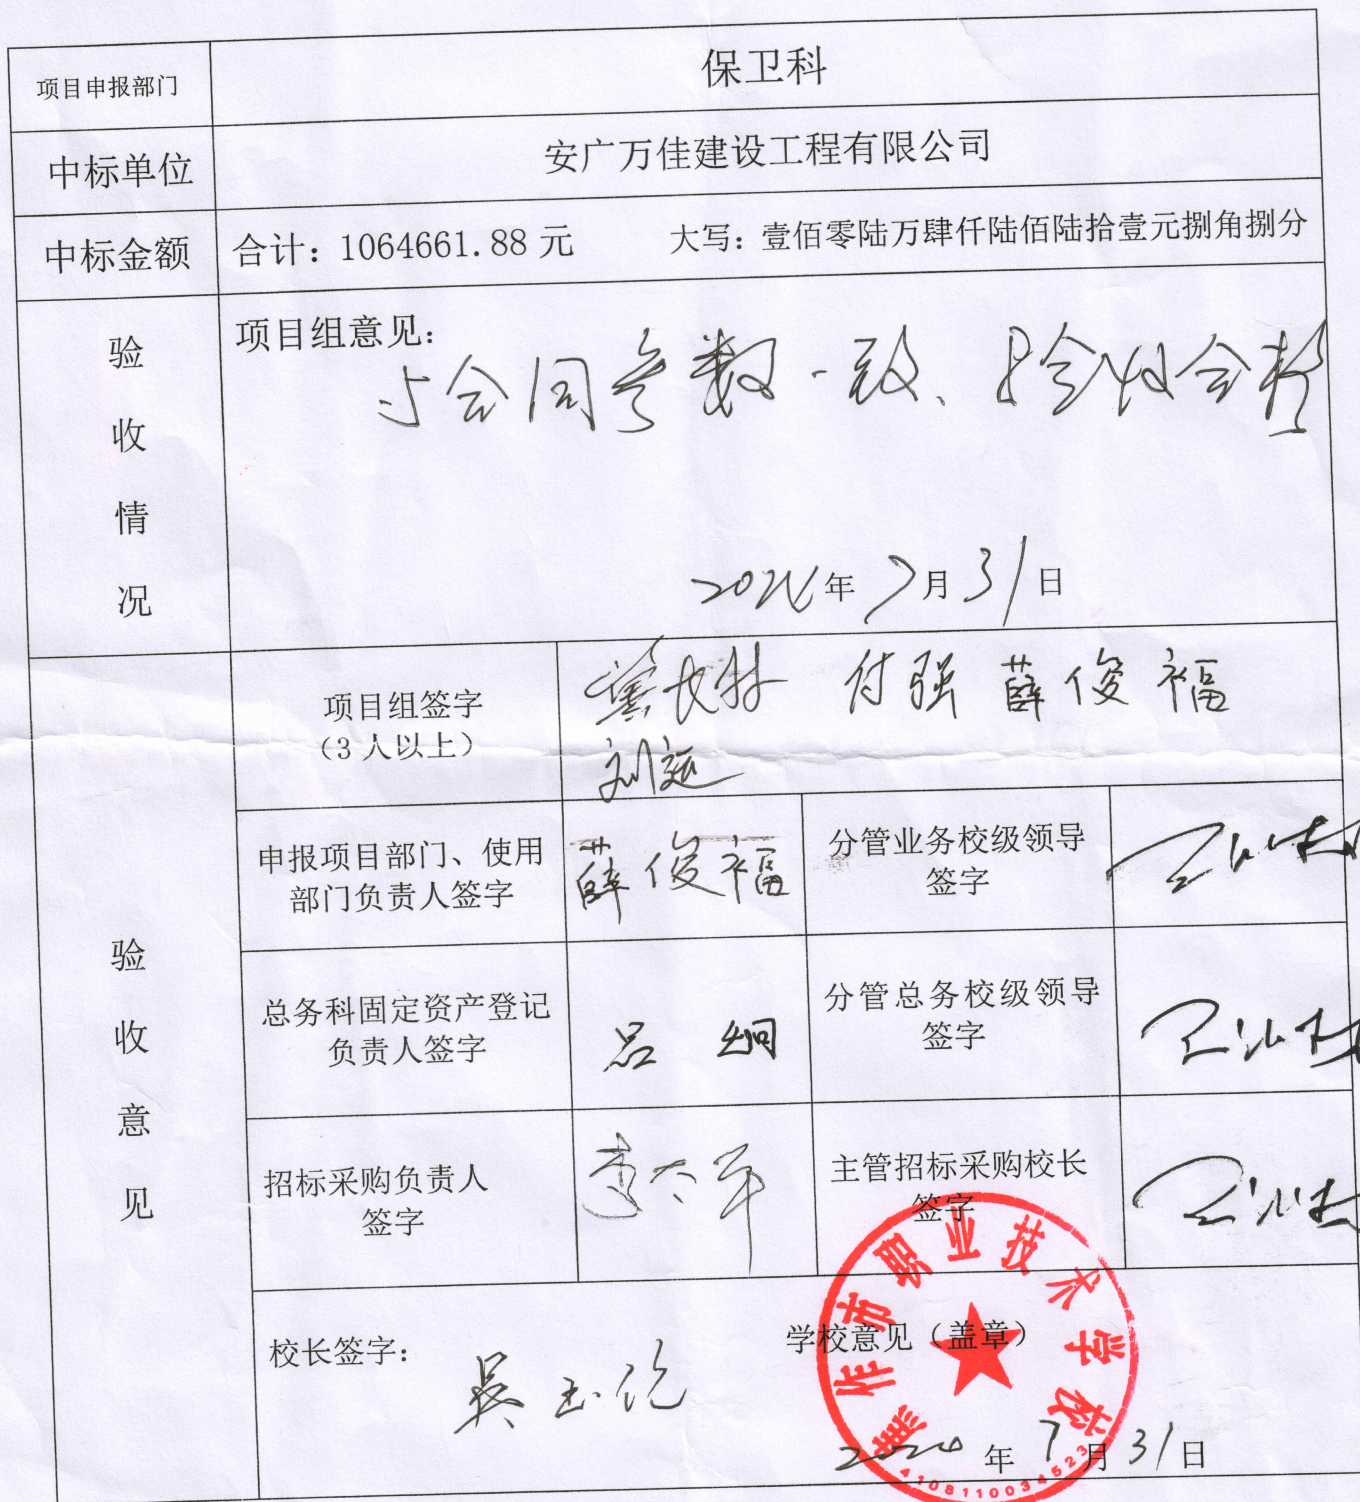 项目申报部门
保卫科
中标单位
安广万佳建设工程有限公司
中标金额
合计：1064661.88 元
大写：壹佰零陆万肆仟陆佰陆拾壹元捌角捌分
验收情况
项目组意见：
与合同参数一致、验收合格
2024年7月31日
验收意见
项目组签字
（3 人以上）
付强 薛俊福
刘延
申报项目部门、使用
部门负责人签字
薛俊福
分管业务校级领导
签字
总务科固定资产登记
负责人签字
吕炯
分管总务校级领导
签字
招标采购负责人
签字
李太平
主管招标采购校长
签字
校长签字：
吴玉
学校意见（盖章）
焦作市职业技术学校
2024年7月31日
4108110034523